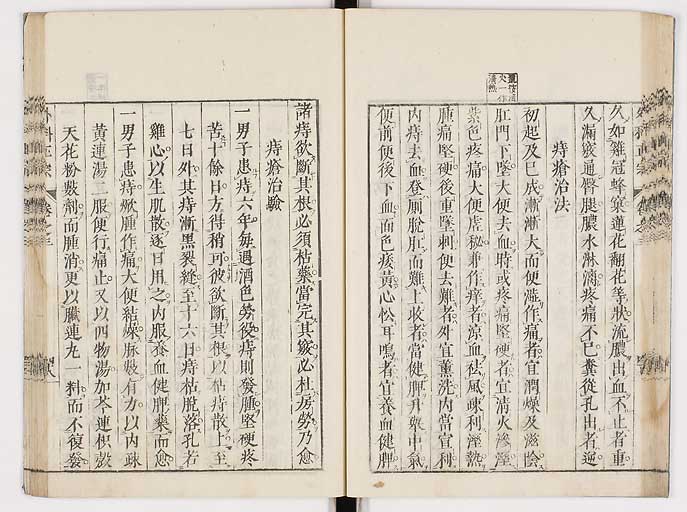 久如雞冠蜂窠蓮花翻花等狀流膿出血不止者重
久漏竅通臀腿膿水淋漓疼痛不已糞從孔出者逆
痔瘡治法
初起及已成漸漸大而便澁作痛者宜潤燥及滋陰
肛門下墜大便去血時或疼痛堅硬者宜清火滲溼
紫色疼痛大便虛秘兼作癢者涼血祛風踈利溼熱
腫痛堅硬後重墜刺便去難者外宜薰洗內當宣利
內痔去血登厠脫肛而難上收者當健脾升舉中氣
便前便後下血面色痿黃心忪耳鳴者宜養血健脾
諸痔欲斷其根必須枯藥當完其竅必杜房勞乃愈
痔瘡治驗
一男子患痔六年每遇酒色勞役痔則發腫堅硬疼
苦十餘日方得稍可彼欲斷其根以枯痔散上至
七日外其痔漸黑裂縫至十六日痔枯脫落孔若
雞心以生肌散逐日用之內服養血健脾藥而愈
一男子患痔嫩腫作痛大便結燥脉數有力以內踈
黃連湯二服便行痛止又以四物湯加芩連枳殼
天花粉數劑而腫消更以臟連丸一料而不復發
外科正宗